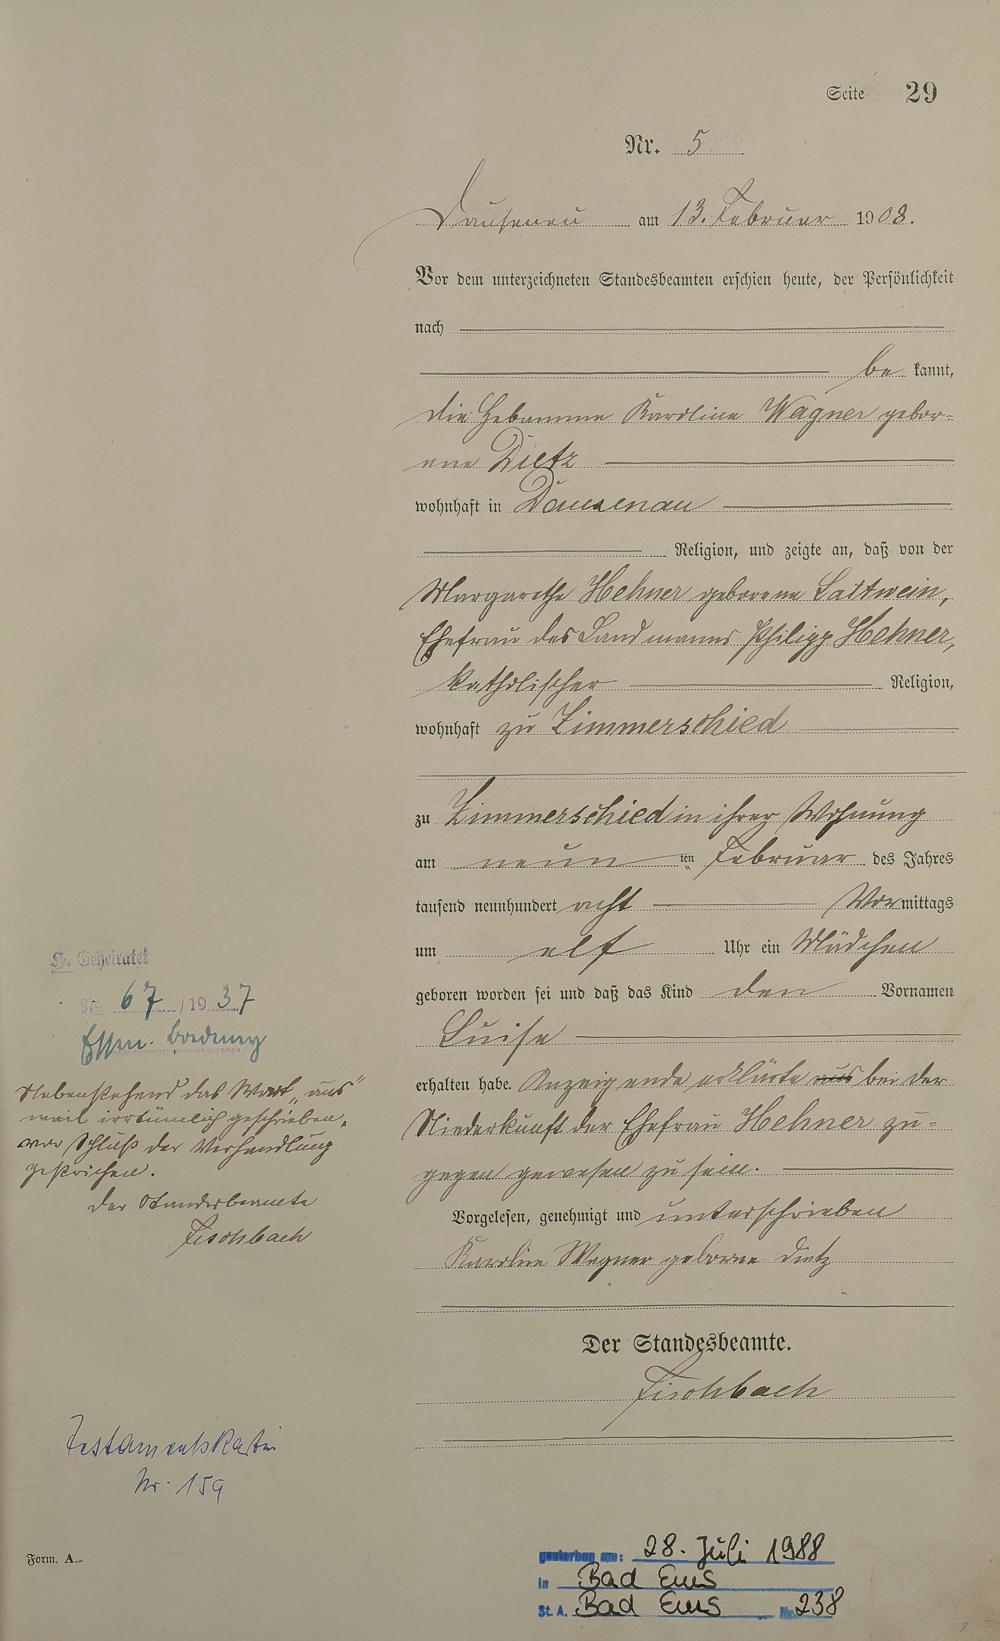 Seite 29
Nr. 5
Dausenau am 13. Februar 1908.
Vor dem unterzeichneten Standesbeamten erschien heute, der Persönlichkeit
nach
be kannt,
die Hebamme Karoline Wagner gebor-
ene Dietz
wohnhaft in Dausenau
Religion, und zeigte an, daß von der
Margarethe Hehner geborene Lattwein,
Ehefrau des Landmanns Philipp Hehner,
katholischer Religion,
wohnhaft zu Zimmerschied
zu Zimmerschied in ihrer Wohnung
am neun ten Februar des Jahres
tausend neunhundert acht Vormittags
um elf Uhr ein Mädchen
geboren worden sei und daß das Kind den Vornamen
Luise
erhalten habe. Anzeigende erklärte aus bei der
Niederkunft der Ehefrau Hehner zu-
gegen gewesen zu sein.
Vorgelesen, genehmigt und unterschrieben
Karoline Wagner geborne Dietz
Der Standesbeamte.
Fischbach
H. Geheiratet
Nr. 67/1937
Essen-
Nebenstehend das Wort „aus"
weil irrtümlich geschrieben,
vor Schluß der Verhandlung
gestrichen.
Der Standesbeamte
Fischbach
Testamentskartei
Nr. 159
Form. A.
gestorben am: 28. Juli 1988
in Bad Ems
St. A. Bad Ems Nr. 238